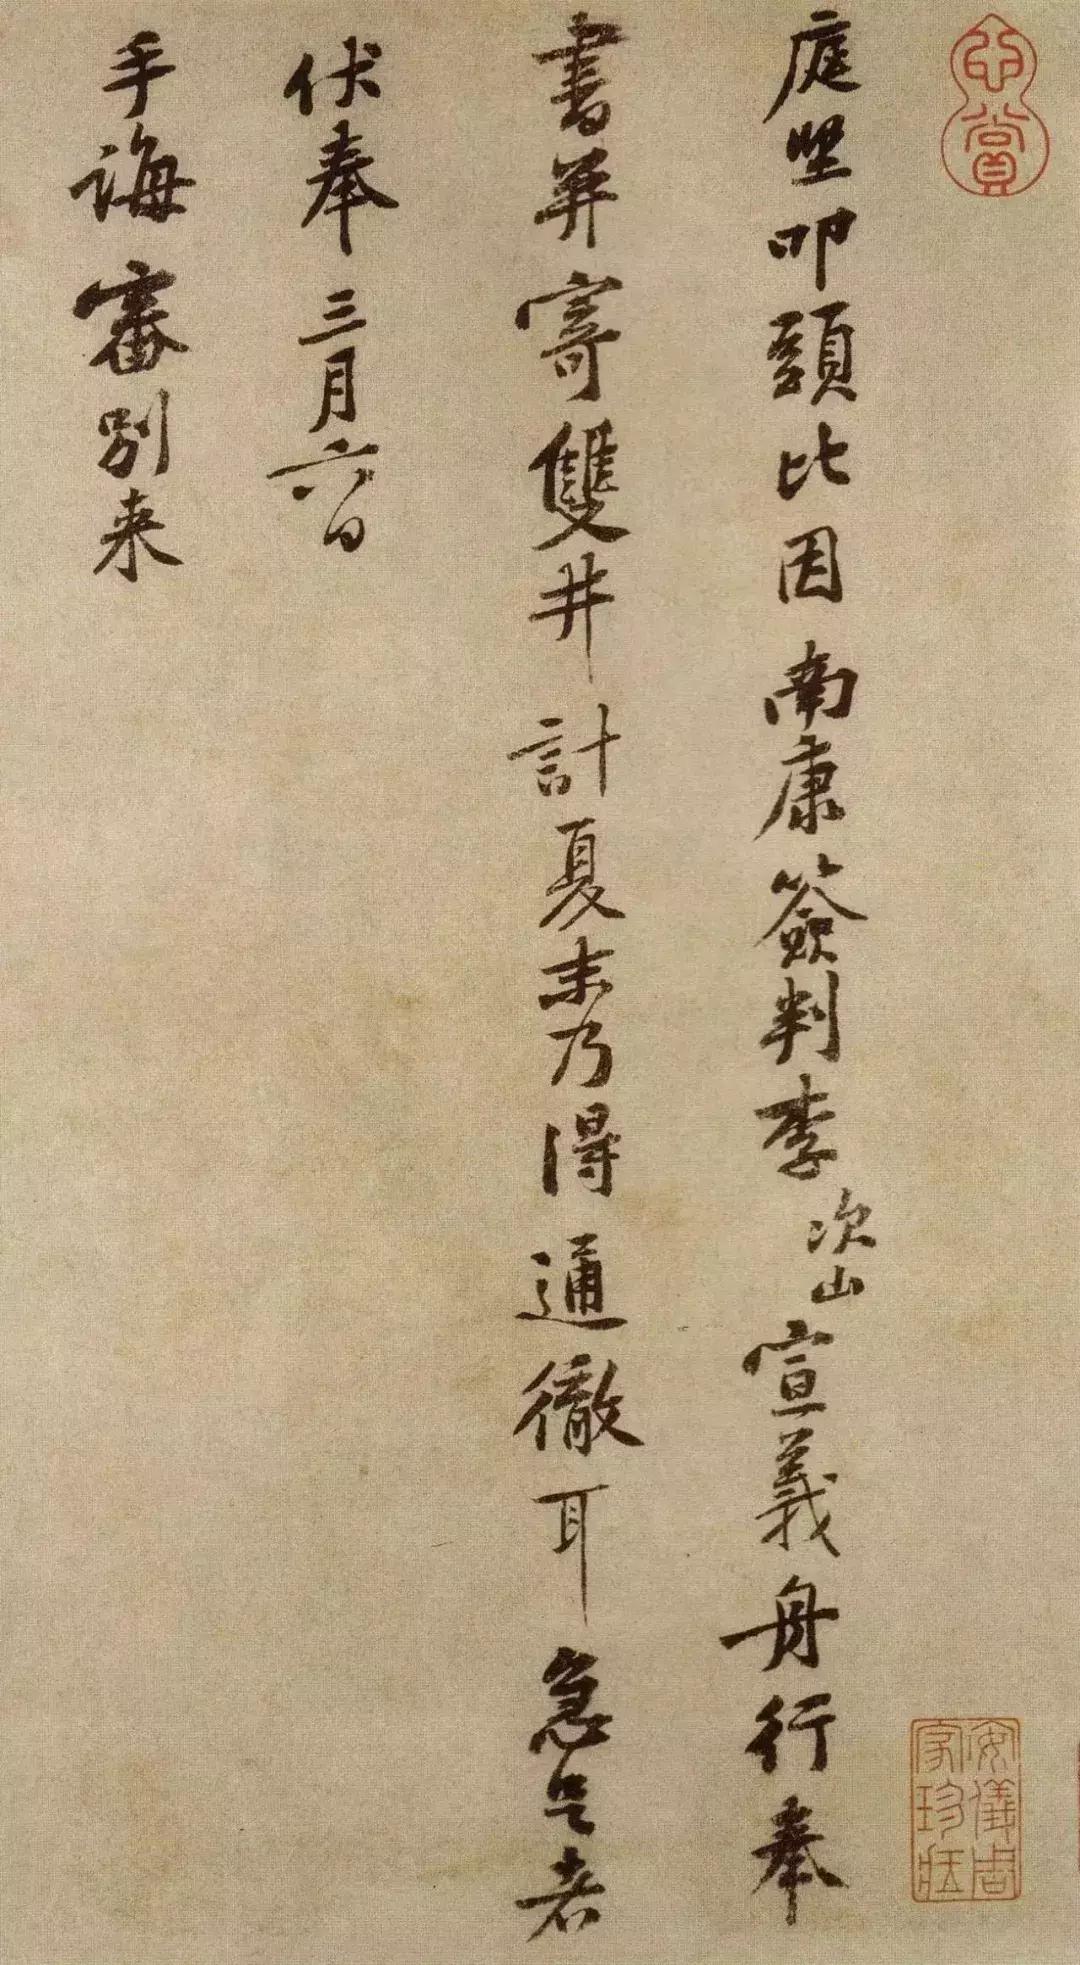 心賞
安儀周家珍藏
庭堅叩頭比因南康簽判李次山宣義舟行奉
書并寄雙井計夏末乃得通徹耳急足者
伏奉三月六日
手誨審別来